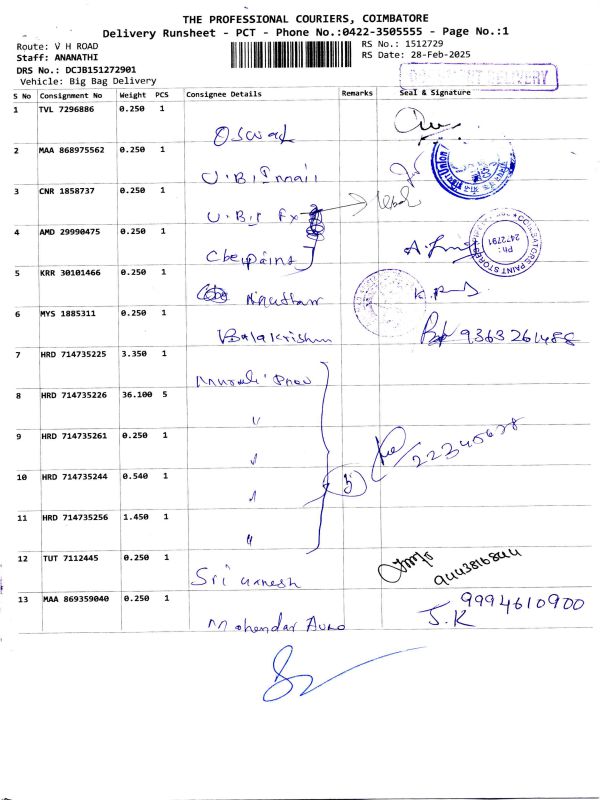 THE PROFESSIONAL COURIERS, COIMBATORE
Delivery Runsheet - PCT - Phone No.:0422-3505555 - Page No.:1
Route: V H ROAD
RS No.: 1512729
Staff: ANANATHI
RS Date: 28-Feb-2025
DRS No.: DCJB151272901
Vehicle: Big Bag Delivery
DELIVERY
S No Consignment No Weight PCS Consignee Details Remarks Seal & Signature
1 TVL 7296886 0.250 1
2 MAA 868975562 0.250 1
U.B.I Main
3 CNR 1858737 0.250 1
U.B.I Fx
4 AMD 29990475 0.250 1
COIMBATORE PAINT STORES
Ph: 2472791
5 KRR 30101466 0.250 1
6 MYS 1885311 0.250 1
Balakrishnn
9363261488
7 HRD 714735225 3.350 1
8 HRD 714735226 36.100 5
"
9 HRD 714735261 0.250 1
"
22345678
10 HRD 714735244 0.540 1
"
5
11 HRD 714735256 1.450 1
"
12 TUT 7112445 0.250 1
Sri Ganesh
9443816844
13 MAA 869359040 0.250 1
Mohendar Auro
J.K 9994610900